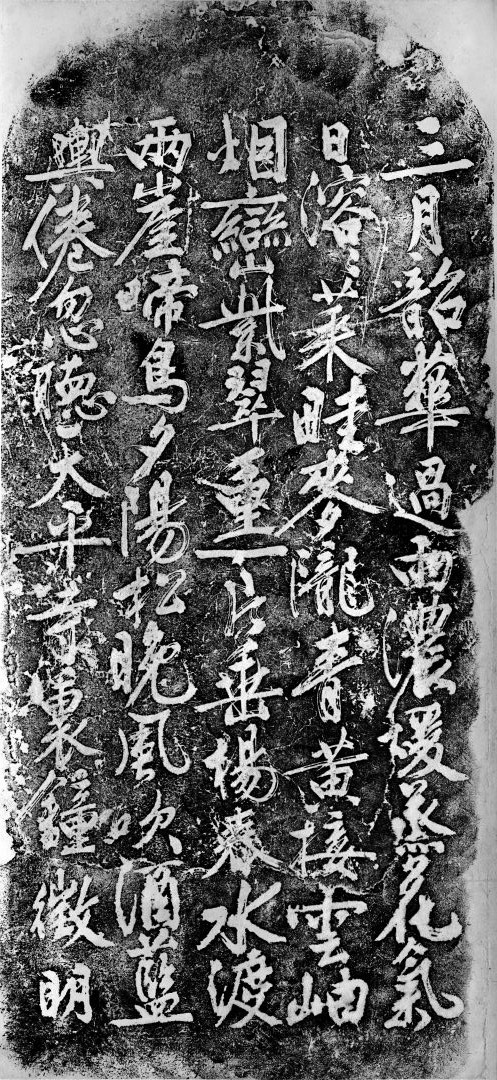 三月韶華過雨濃煖蒸花氣
日溶〻菜畦麥隴青黃接雲岫
烟巒紫翠重一片垂楊春水渡
兩崖啼鳥夕陽松晚風吹酒藍
輿倦忽聽天平寺裏鐘徵明